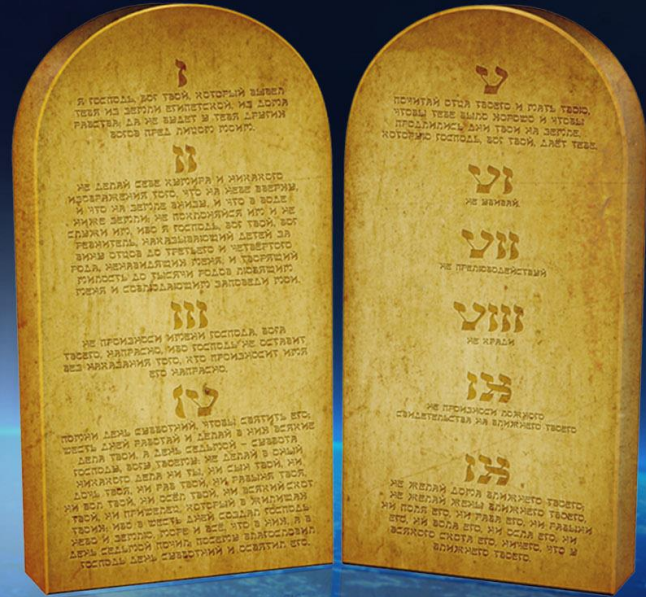 I
Я ГОСПОДЬ, БОГ ТВОЙ, КОТОРЫЙ ВЫВЕЛ
ТЕБЯ ИЗ ЗЕМЛИ ЕГИПЕТСКОЙ, ИЗ ДОМА
РАБСТВА; ДА НЕ БУДЕТ У ТЕБЯ ДРУГИХ
БОГОВ ПРЕД ЛИЦОМ МОИМ.
II
НЕ ДЕЛАЙ СЕБЕ КУМИРА И НИКАКОГО
ИЗОБРАЖЕНИЯ ТОГО, ЧТО НА НЕБЕ ВВЕРХУ,
И ЧТО НА ЗЕМЛЕ ВНИЗУ, И ЧТО В ВОДЕ
НИЖЕ ЗЕМЛИ; НЕ ПОКЛОНЯЙСЯ ИМ И НЕ
СЛУЖИ ИМ, ИБО Я ГОСПОДЬ, БОГ ТВОЙ, БОГ
РЕВНИТЕЛЬ, НАКАЗЫВАЮЩИЙ ДЕТЕЙ ЗА
ВИНУ ОТЦОВ ДО ТРЕТЬЕГО И ЧЕТВЁРТОГО
РОДА, НЕНАВИДЯЩИХ МЕНЯ, И ТВОРЯЩИЙ
МИЛОСТЬ ДО ТЫСЯЧИ РОДОВ ЛЮБЯЩИМ
МЕНЯ И СОБЛЮДАЮЩИМ ЗАПОВЕДИ МОИ.
III
НЕ ПРОИЗНОСИ ИМЕНИ ГОСПОДА, БОГА
ТВОЕГО, НАПРАСНО, ИБО ГОСПОДЬ НЕ ОСТАВИТ
БЕЗ НАКАЗАНИЯ ТОГО, КТО ПРОИЗНОСИТ ИМЯ
ЕГО НАПРАСНО.
VI
ПОМНИ ДЕНЬ СУББОТНИЙ, ЧТОБЫ СВЯТИТЬ ЕГО;
ШЕСТЬ ДНЕЙ РАБОТАЙ И ДЕЛАЙ В НИХ ВСЯКИЕ
ДЕЛА ТВОИ, А ДЕНЬ СЕДЬМОЙ – СУББОТА
ГОСПОДУ, БОГУ ТВОЕМУ: НЕ ДЕЛАЙ В ОНЫЙ
НИКАКОГО ДЕЛА НИ ТЫ, НИ СЫН ТВОЙ, НИ
ДОЧЬ ТВОЯ, НИ РАБ ТВОЙ, НИ РАБЫНЯ ТВОЯ,
НИ ВОЛ ТВОЙ, НИ ОСЁЛ ТВОЙ, НИ ВСЯКИЙ СКОТ
ТВОЙ, НИ ПРИШЕЛЕЦ, КОТОРЫЙ В ЖИЛИЩАХ
ТВОИХ; ИБО В ШЕСТЬ ДНЕЙ СОЗДАЛ ГОСПОДЬ
НЕБО И ЗЕМЛЮ, МОРЕ И ВСЕ, ЧТО В НИХ, А В
ДЕНЬ СЕДЬМОЙ ПОЧИЛ; ПОСЕМУ БЛАГОСЛОВИЛ
ГОСПОДЬ ДЕНЬ СУББОТНИЙ И ОСВЯТИЛ ЕГО.
V
ПОЧИТАЙ ОТЦА ТВОЕГО И МАТЬ ТВОЮ,
ЧТОБЫ ТЕБЕ БЫЛО ХОРОШО И ЧТОБЫ
ПРОДЛИЛИСЬ ДНИ ТВОИ НА ЗЕМЛЕ,
КОТОРУЮ ГОСПОДЬ, БОГ ТВОЙ, ДАЁТ ТЕБЕ.
IV
НЕ УБИВАЙ.
IIV
НЕ ПРЕЛЮБОДЕЙСТВУЙ
IIIV
НЕ КРАДИ
XI
НЕ ПРОИЗНОСИ ЛОЖНОГО
СВИДЕТЕЛЬСТВА НА БЛИЖНЕГО ТВОЕГО
XI
НЕ ЖЕЛАЙ ДОМА БЛИЖНЕГО ТВОЕГО;
НЕ ЖЕЛАЙ ЖЕНЫ БЛИЖНЕГО ТВОЕГО,
НИ ПОЛЯ ЕГО, НИ РАБА ЕГО, НИ РАБЫНИ
ЕГО, НИ ВОЛА ЕГО, НИ ОСЛА ЕГО, НИ
ВСЯКОГО СКОТА ЕГО, НИЧЕГО, ЧТО У
БЛИЖНЕГО ТВОЕГО.